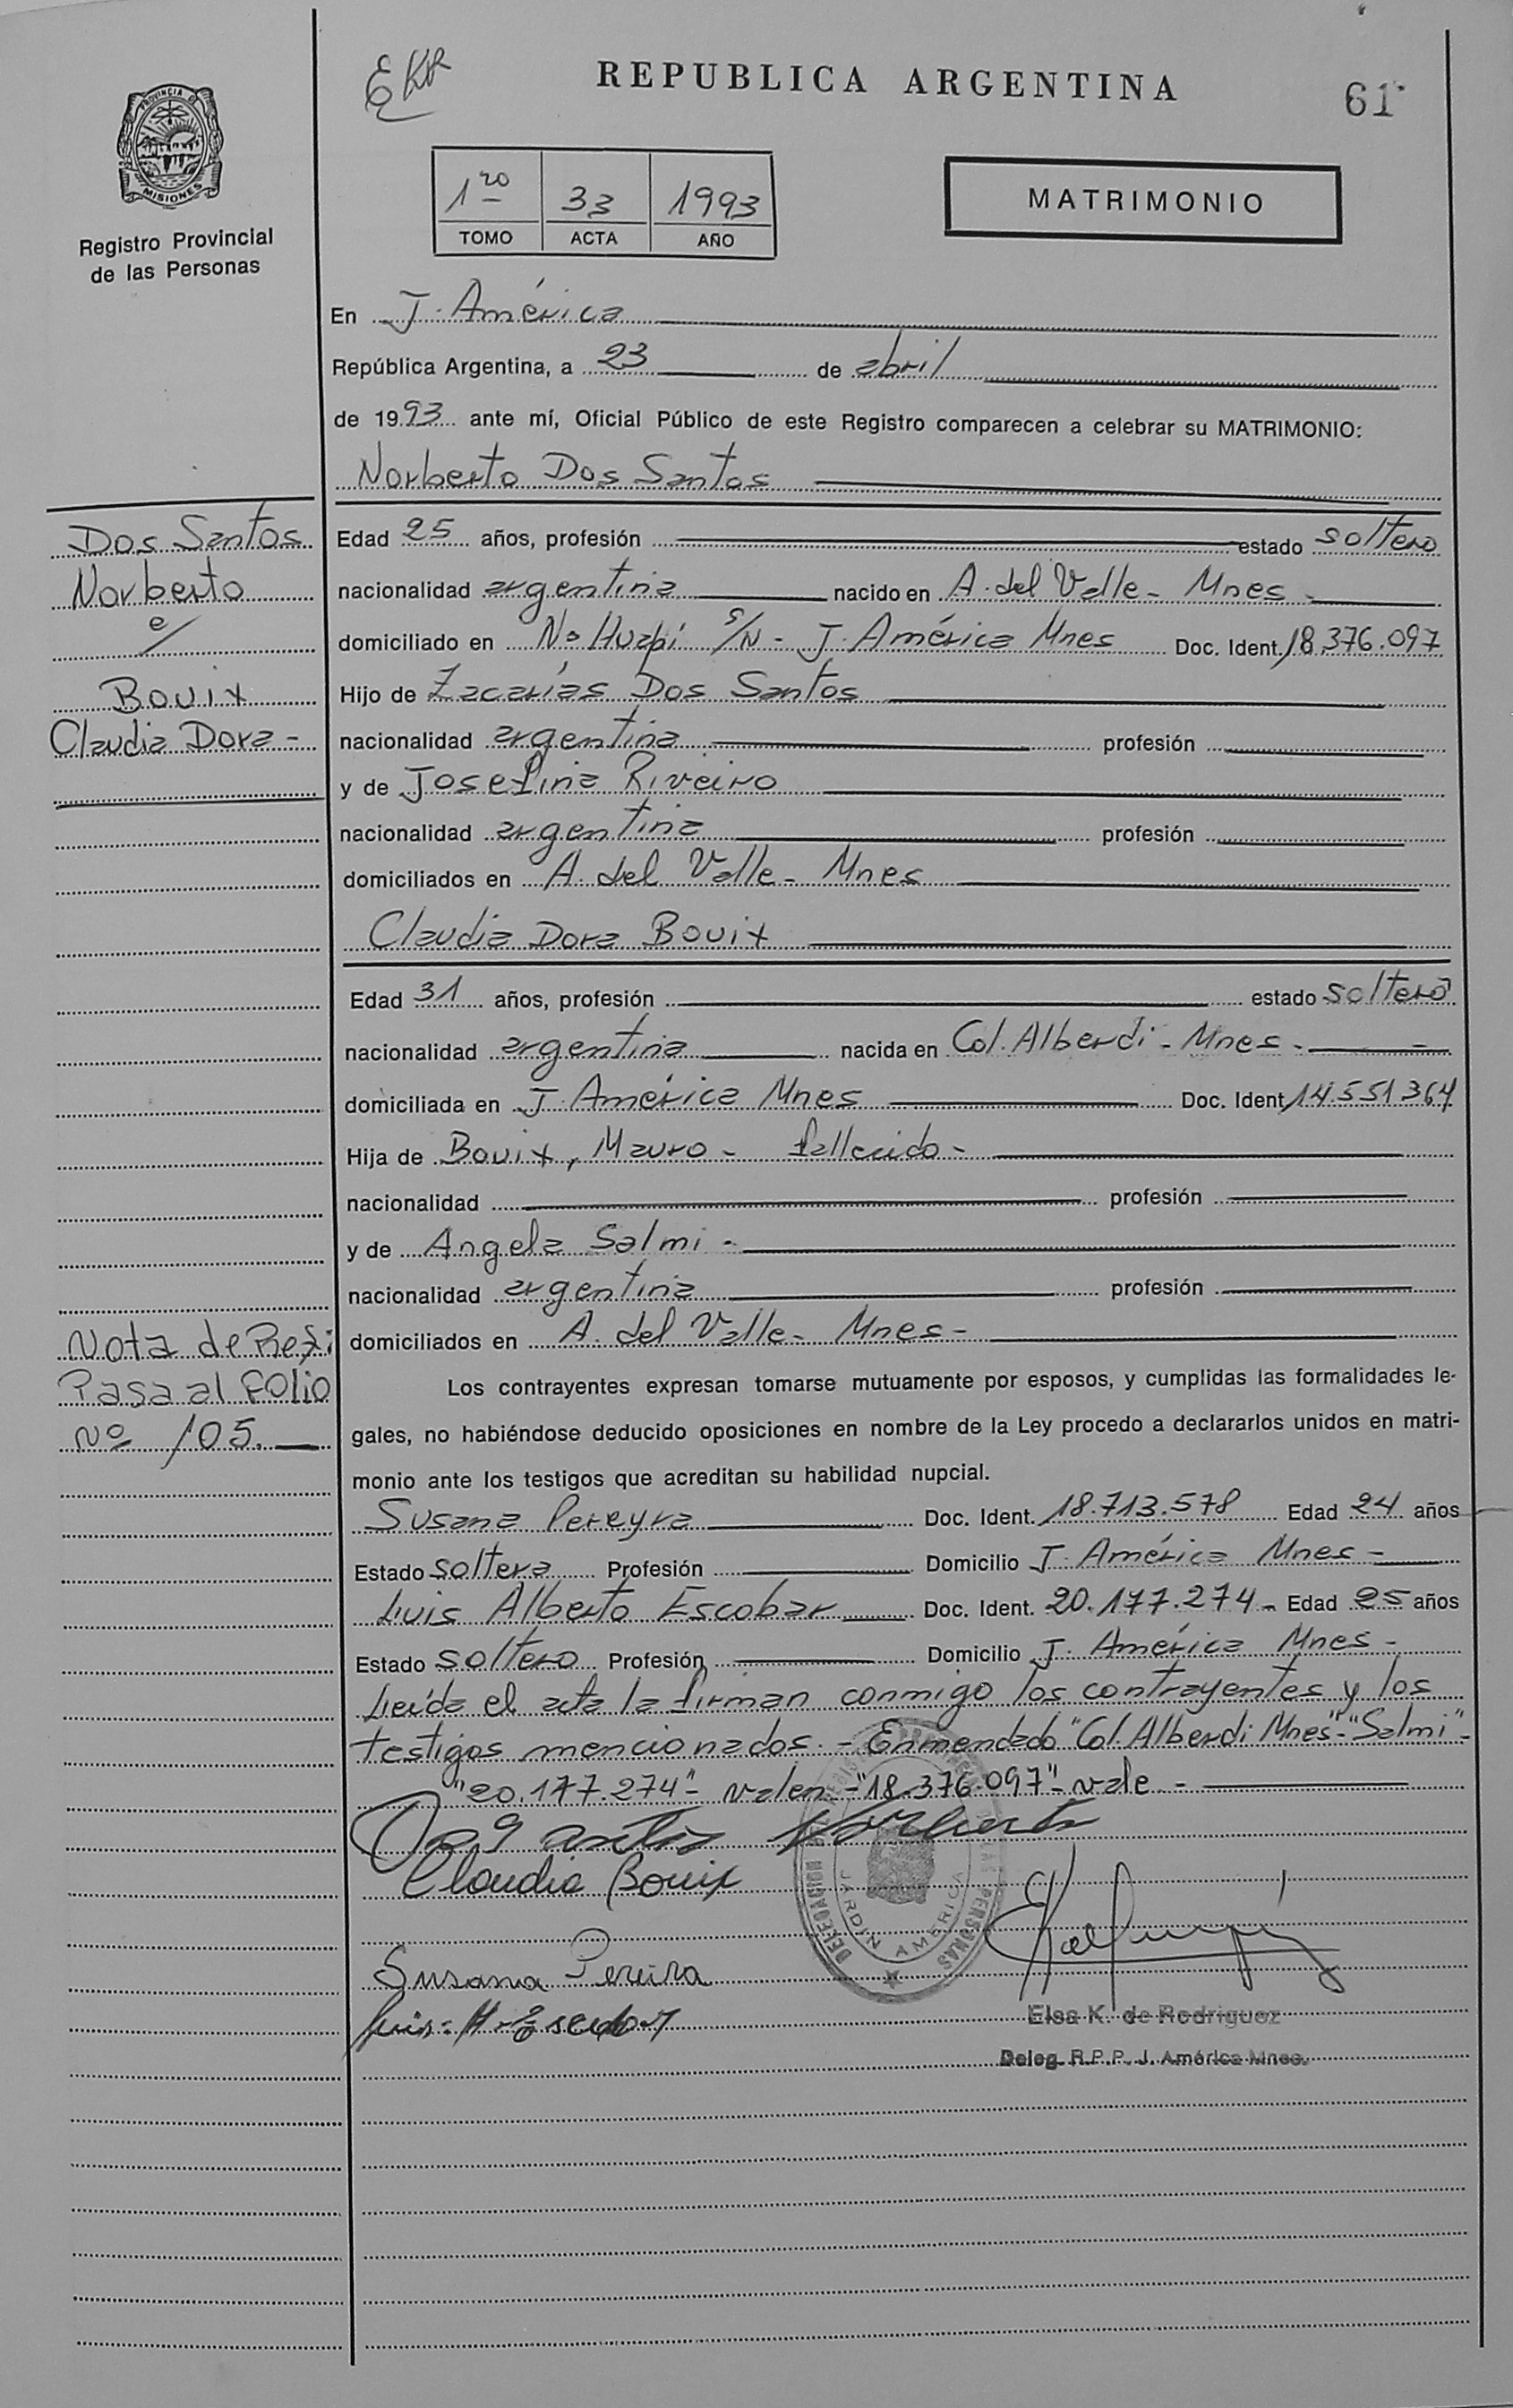 EKR
REPUBLICA ARGENTINA
61
PROVINCIA DE
MISIONES
Registro Provincial
de las Personas
1ro 33 1993
TOMO ACTA AÑO
MATRIMONIO
En J. América
República Argentina, a 23 de abril
de 1993 ante mí, Oficial Público de este Registro comparecen a celebrar su MATRIMONIO:
Norberto Dos Santos
Dos Santos
Norberto
c/
Bouix
Claudia Dora -
Edad 25 años, profesión estado soltero
nacionalidad argentina nacido en A. del Valle - Mnes -
domiciliado en N. Huapí S/N - J. América Mnes Doc. Ident. 18.376.097
Hijo de Zacarías Dos Santos
nacionalidad argentina profesión
y de Josefina Riveiro
nacionalidad argentina profesión
domiciliados en A. del Valle - Mnes
Claudia Dora Bouix
Edad 31 años, profesión estado soltero
nacionalidad argentina nacida en Col. Alberdi - Mnes -
domiciliada en J. América Mnes Doc. Ident. 14.551.364
Hija de Bouix, Mauro - fallecido -
nacionalidad profesión
y de Angela Salmi -
nacionalidad argentina profesión
domiciliados en A. del Valle - Mnes -
Nota de Ref:
Pasa al folio
Nº 105.
Los contrayentes expresan tomarse mutuamente por esposos, y cumplidas las formalidades le-
gales, no habiéndose deducido oposiciones en nombre de la Ley procedo a declararlos unidos en matri-
monio ante los testigos que acreditan su habilidad nupcial.
Susana Pereyra Doc. Ident. 18.713.578 Edad 24 años
Estado soltera Profesión Domicilio J. América Mnes -
Luis Alberto Escobar Doc. Ident. 20.177.274 - Edad 25 años
Estado soltero Profesión Domicilio J. América Mnes -
Leída el acta la firman conmigo los contrayentes y los
testigos mencionados. - Enmendado "Col. Alberdi Mnes" - "Salmi" -
"20.177.274" - valen - "18.376.097" - vale -
Dos Santos Norberto
Claudia Bouix
JARDIN AMERICA
Susana Pereira
Luis A. Escobar
Elsa K. de Rodriguez
Deleg. R.P.P. J. América Mnes.